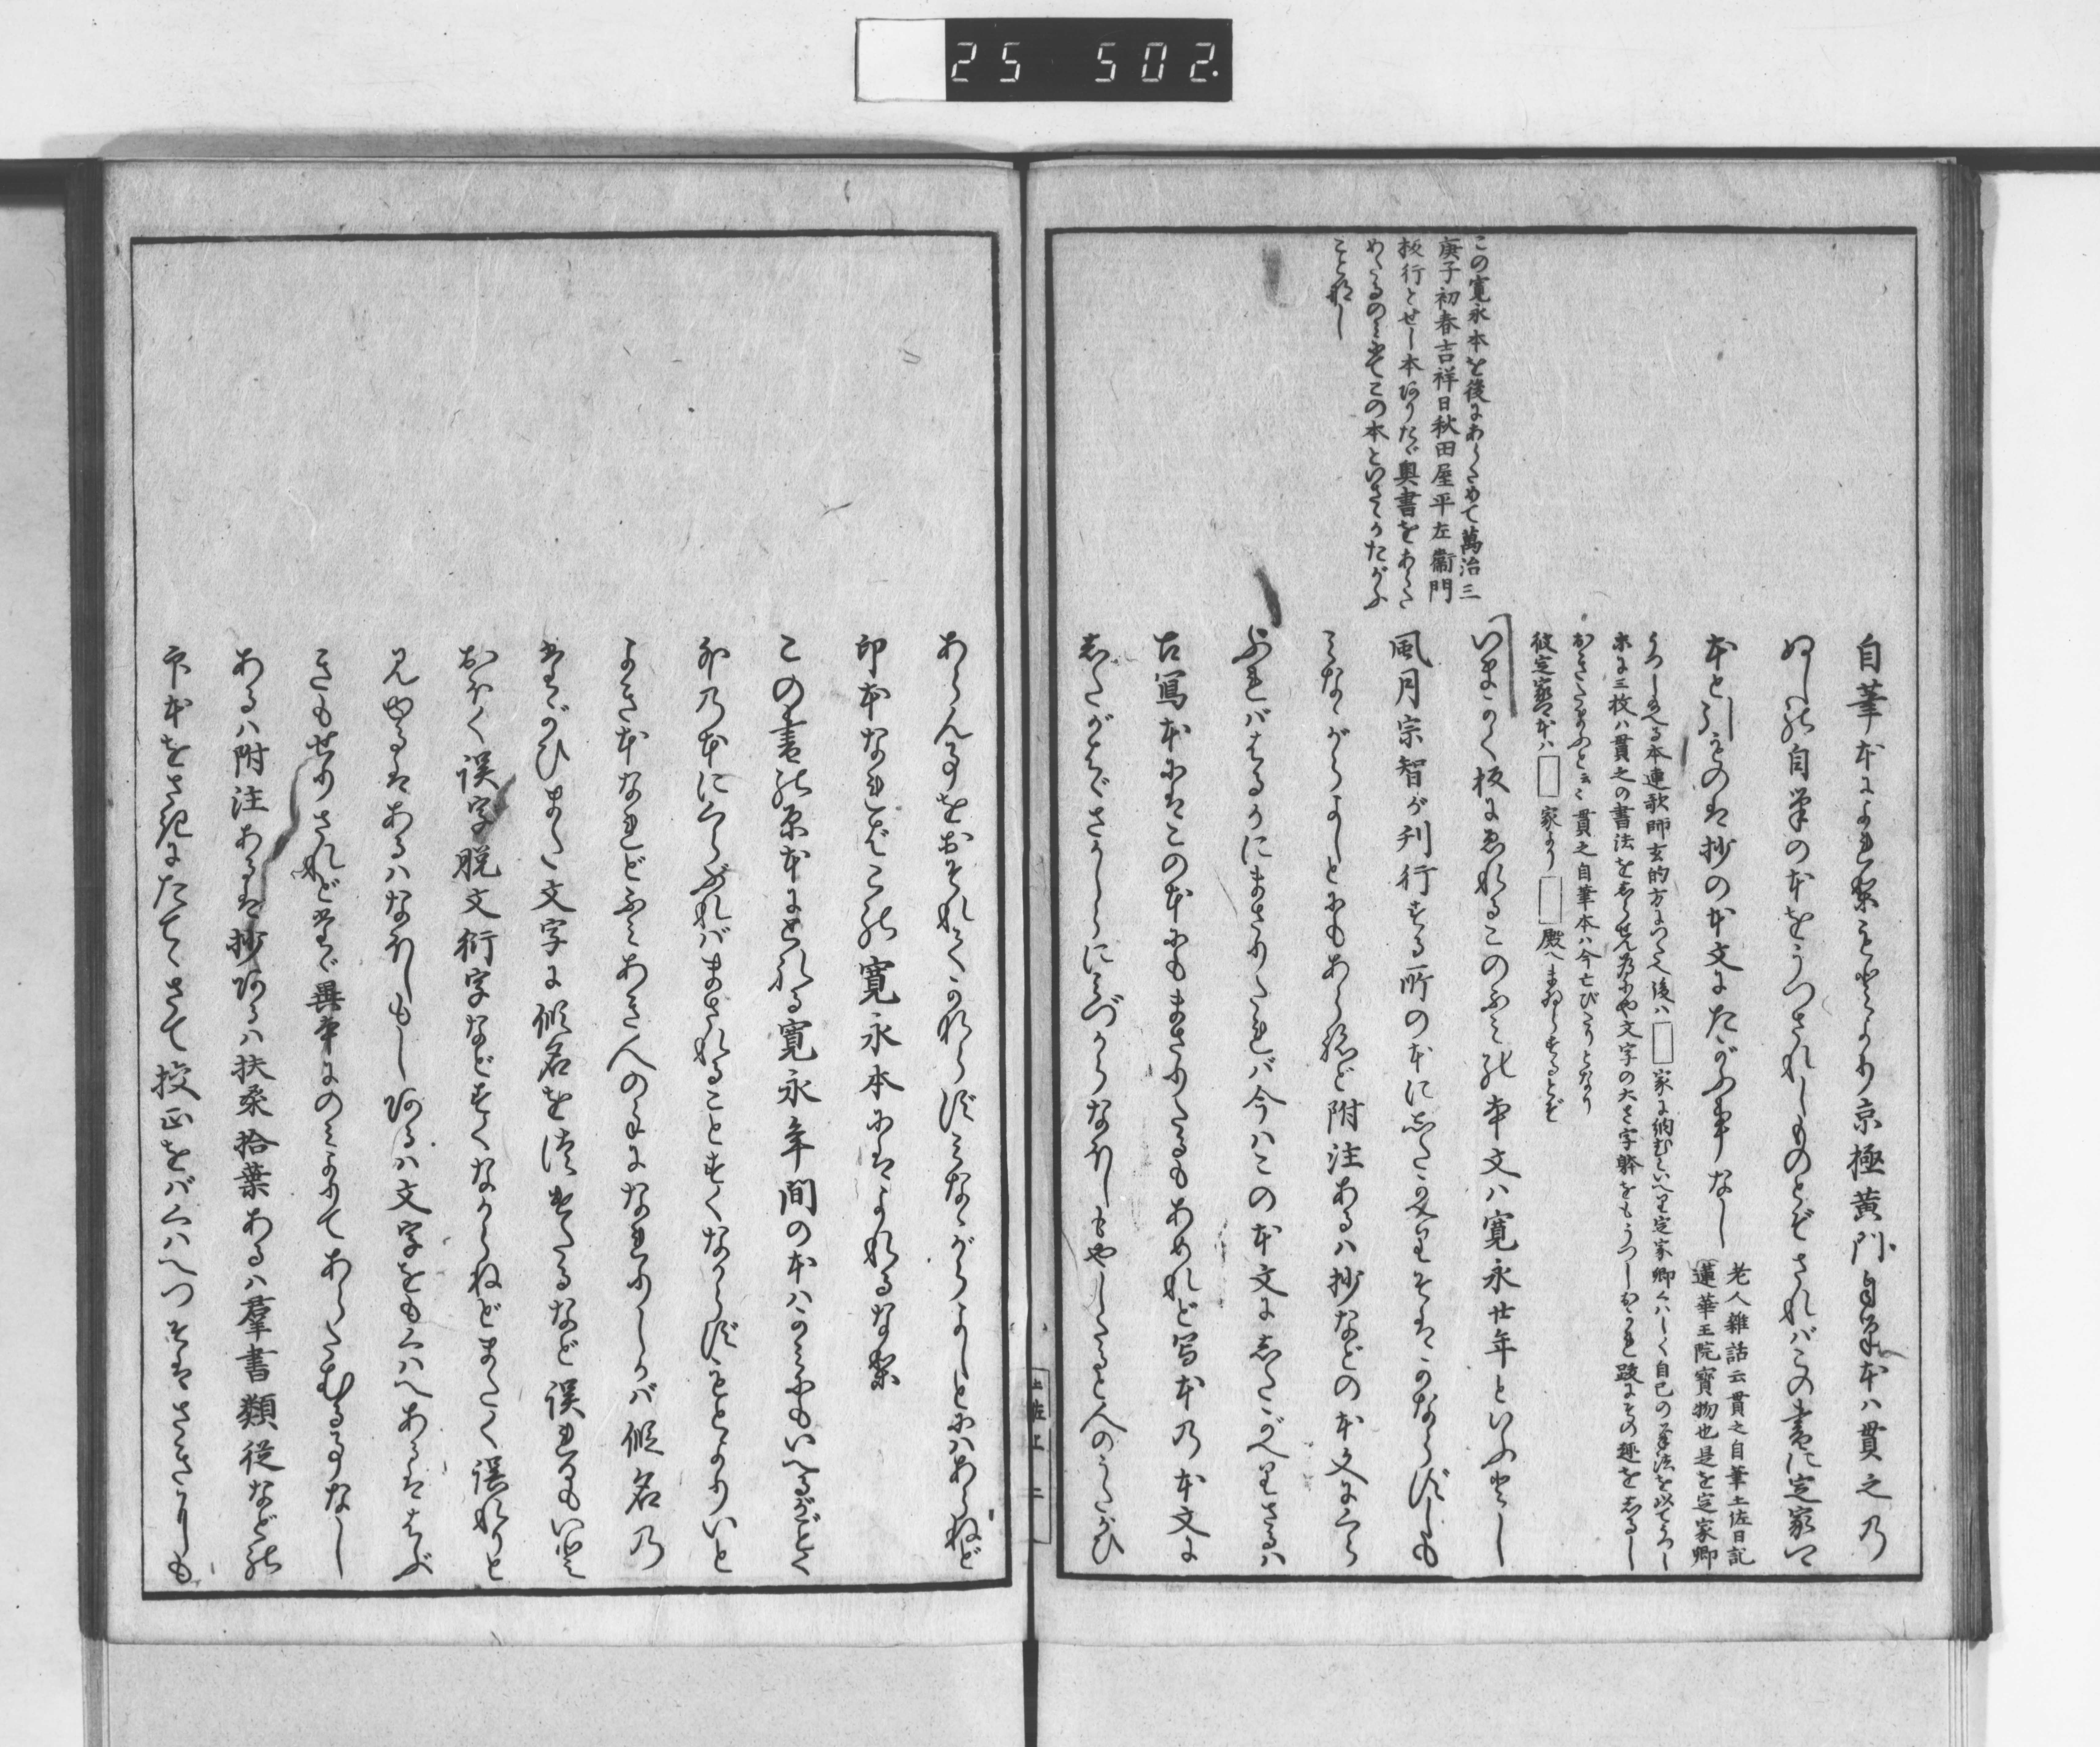 25 502.
この寛永本を後にあらためて萬治三
庚子初春吉祥日秋田屋平左衞門
板行とせし本ありたゞ奥書をあらた
めたるのみにてこの本といさゝかたがふ
こと那し
自筆本によれりとぞより京極黄門自筆本ハ貫之乃
ぬしの自筆の本をうつされしものとぞされバこの書に定家
本と引ものは抄の本文にたがふ事なし
老人雜話云貫之自筆土佐日記
蓮華王院寳物也是を定家卿
うつしたる本連歌師玄的方につたへ後ハ□家に納むといへり定家卿くハしく自己の筆法を以てうつし
末に三枚ハ貫之の書法をしらせん為にや文字の大さ字躰をもうつしおかれ跋にその趣をしるし
おきたまふとぞ貫之自筆本ハ今亡びたりとなり
彼定家本ハ□家より□殿へまゐらするとぞ
いまかく板にゑれるこのふみの本文ハ寛永廿年といふとし
風月宗智が刊行する所の本にしたがへりそはかならずしも
みなゝがらよしとにもあらねど附注あるハ抄などの本文にくら
ぶれバはるかにまさりたれバ今ハこの本文にしたがへりさるハ
古寫本にはこの本にもまさりたるもあめれど写本乃本文に
したがはゞさかしらにみづからなほしもやしたると人のうたがひ
土佐上 二
あらん事をおそれてかれらずみなゝがらよしとにハあらねど
印本なればこの寛永本にはよれるな梨
この書の原本とせる寛永年間の本ハかみにもいへるがごとく
外乃本にくらぶれバまされることすくなからずもとよりいと
よき本なれどふみあき人の手になれりしかバ假名乃
たがひまた文字に假名をつけたるなど誤れるもいと
おほく誤字脱文衍字などすくなからねどまたく誤れりと
見ゆるはあるハなほしもしあるハ文字をもくハへあるははぶ
きもせりされどたゞ異本にのみよりてあらたむる事なし
あるハ附注あるは抄あるハ扶桑拾葉あるハ羣書類従などの
印本をさきにたてゝさて挍正をバくハへつそはさきざきも